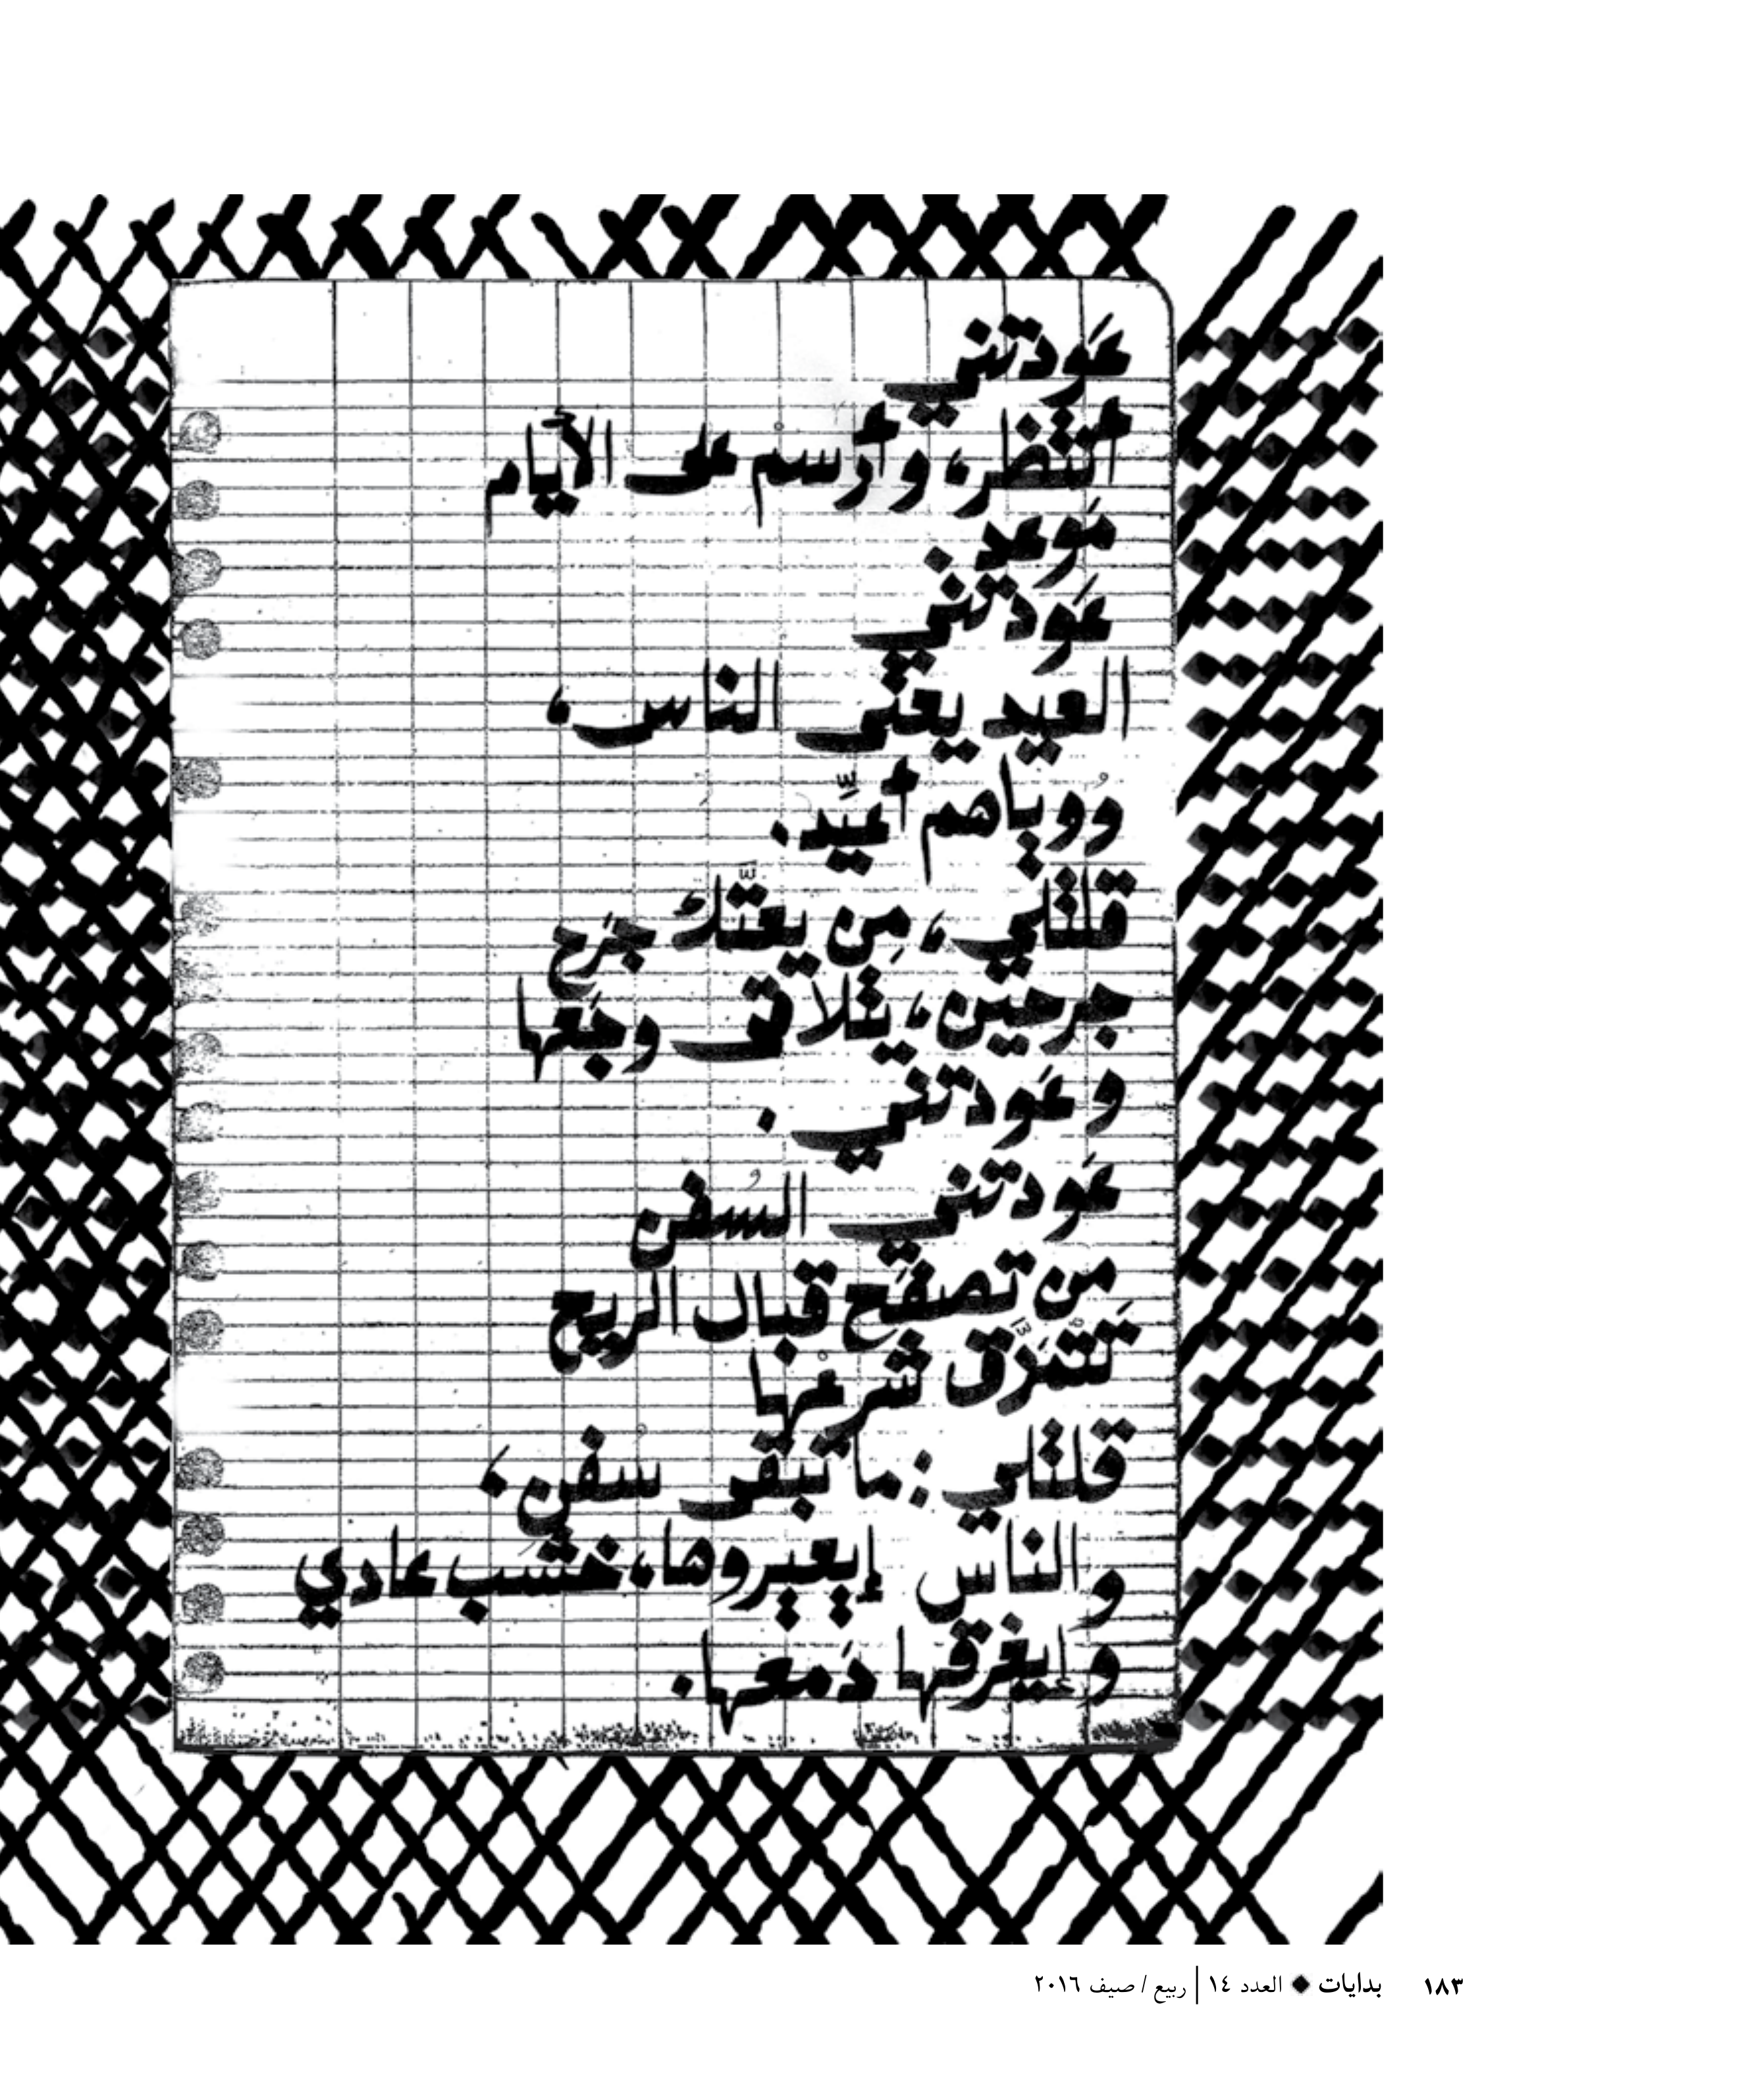 عَودتني
أنتظر، وأرسم على الأيام
مَوعد.
عَودتني
العيد يعتى الناس،
وُوياهم أعيِّد.
قلتلي، مِن يعتّك جَرح
جرحين، يتلاقى وجَعها
وعَودتني.
عَودتني السُفن
من تصفَح قبال الريح
تَتمَزَّق شرعْها
قلتلي: ما تبقى سْفن،
والناس إيعبروها، خشَب عادي
وإيغرقها دَمعها.
١٨٣ بدايات ◆ العدد ١٤ | ربيع / صيف ٢٠١٦